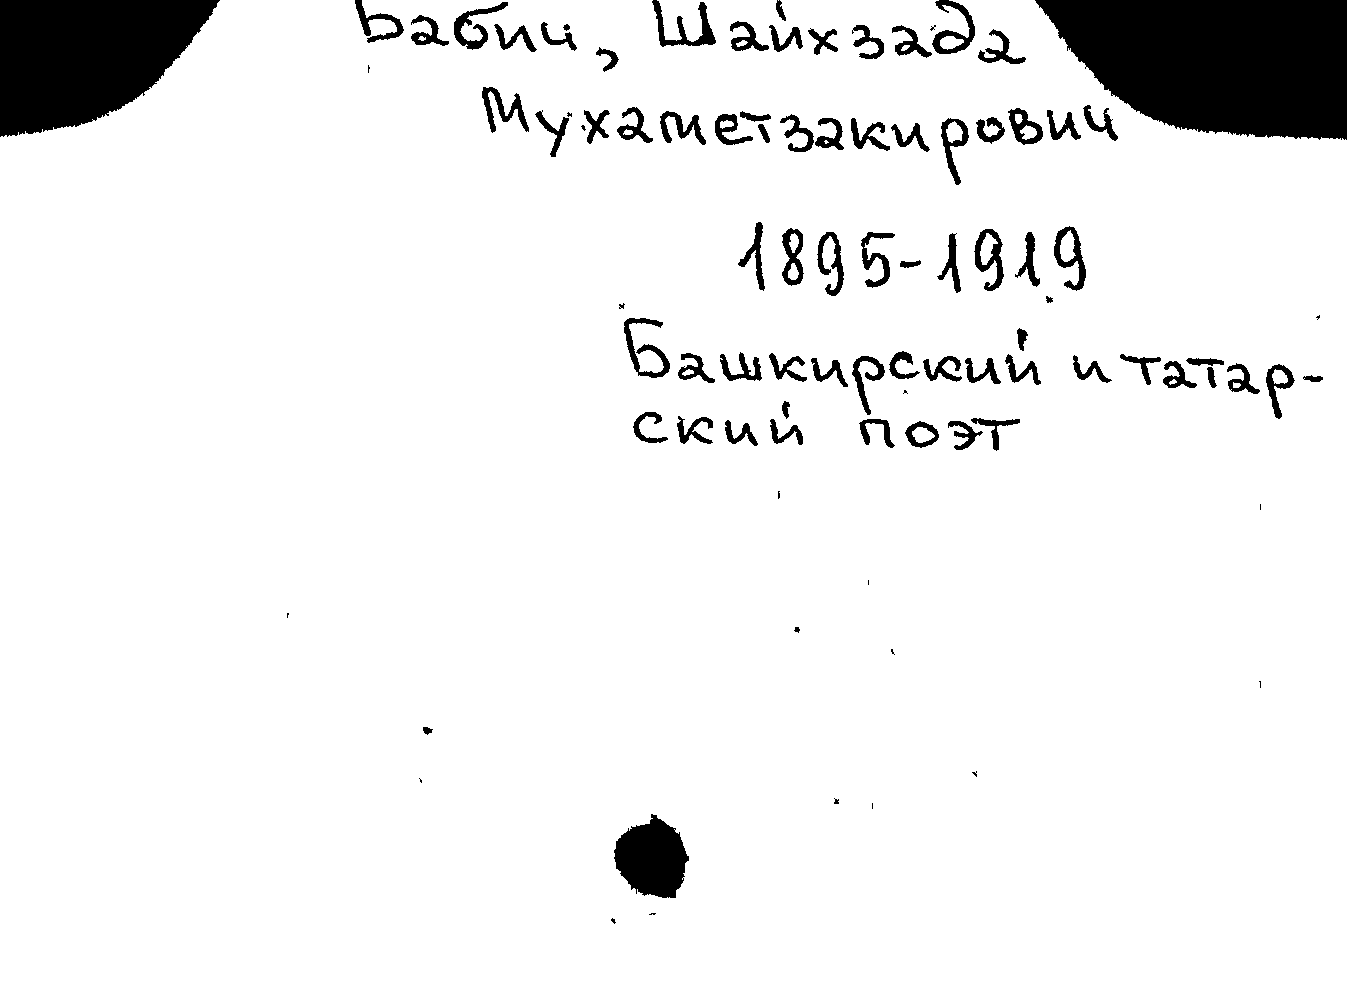 Бабич, Шайхзада
Мухаметзакирович
1895-1919
Башкирский и татар-
ский поэт